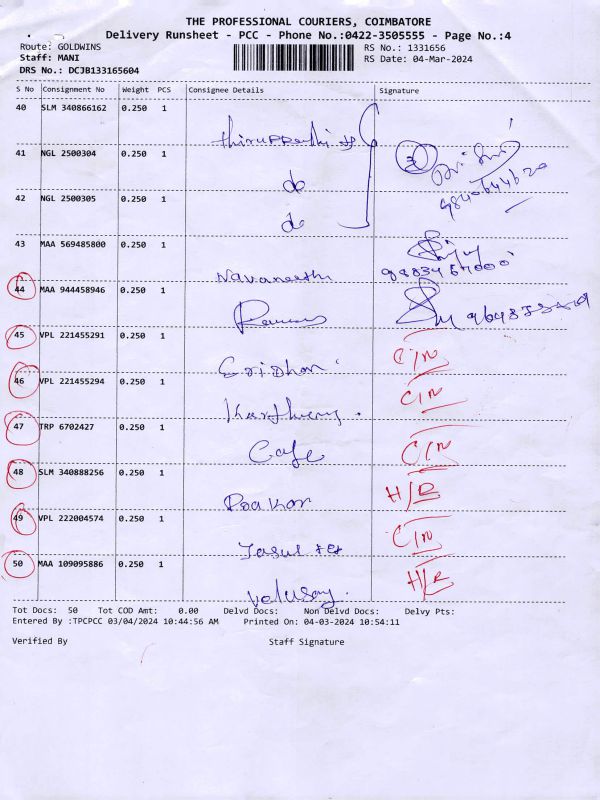 THE PROFESSIONAL COURIERS, COIMBATORE
Delivery Runsheet - PCC - Phone No.:0422-3505555 - Page No.:4
Route: GOLDWINS RS No.: 1331656
Staff: MANI RS Date: 04-Mar-2024
DRS No.: DCJB133165604
S No Consignment No Weight PCS Consignee Details Signature
40 SLM 340866162 0.250 1
41 NGL 2500304 0.250 1
do
42 NGL 2500305 0.250 1
do
43 MAA 569485800 0.250 1
Navaneethi
44 MAA 944458946 0.250 1
45 VPL 221455291 0.250 1 C/N
Sridhar
46 VPL 221455294 0.250 1 C/N
47 TRP 6702427 0.250 1
Cafe C/N
48 SLM 340888256 0.250 1 H/R
49 VPL 222004574 0.250 1 C/N
50 MAA 109095886 0.250 1 H/R
Tot Docs: 50 Tot COD Amt: 0.00 Delvd Docs: Non Delvd Docs: Delvy Pts:
Entered By :TPCPCC 03/04/2024 10:44:56 AM Printed On: 04-03-2024 10:54:11
Verified By Staff Signature